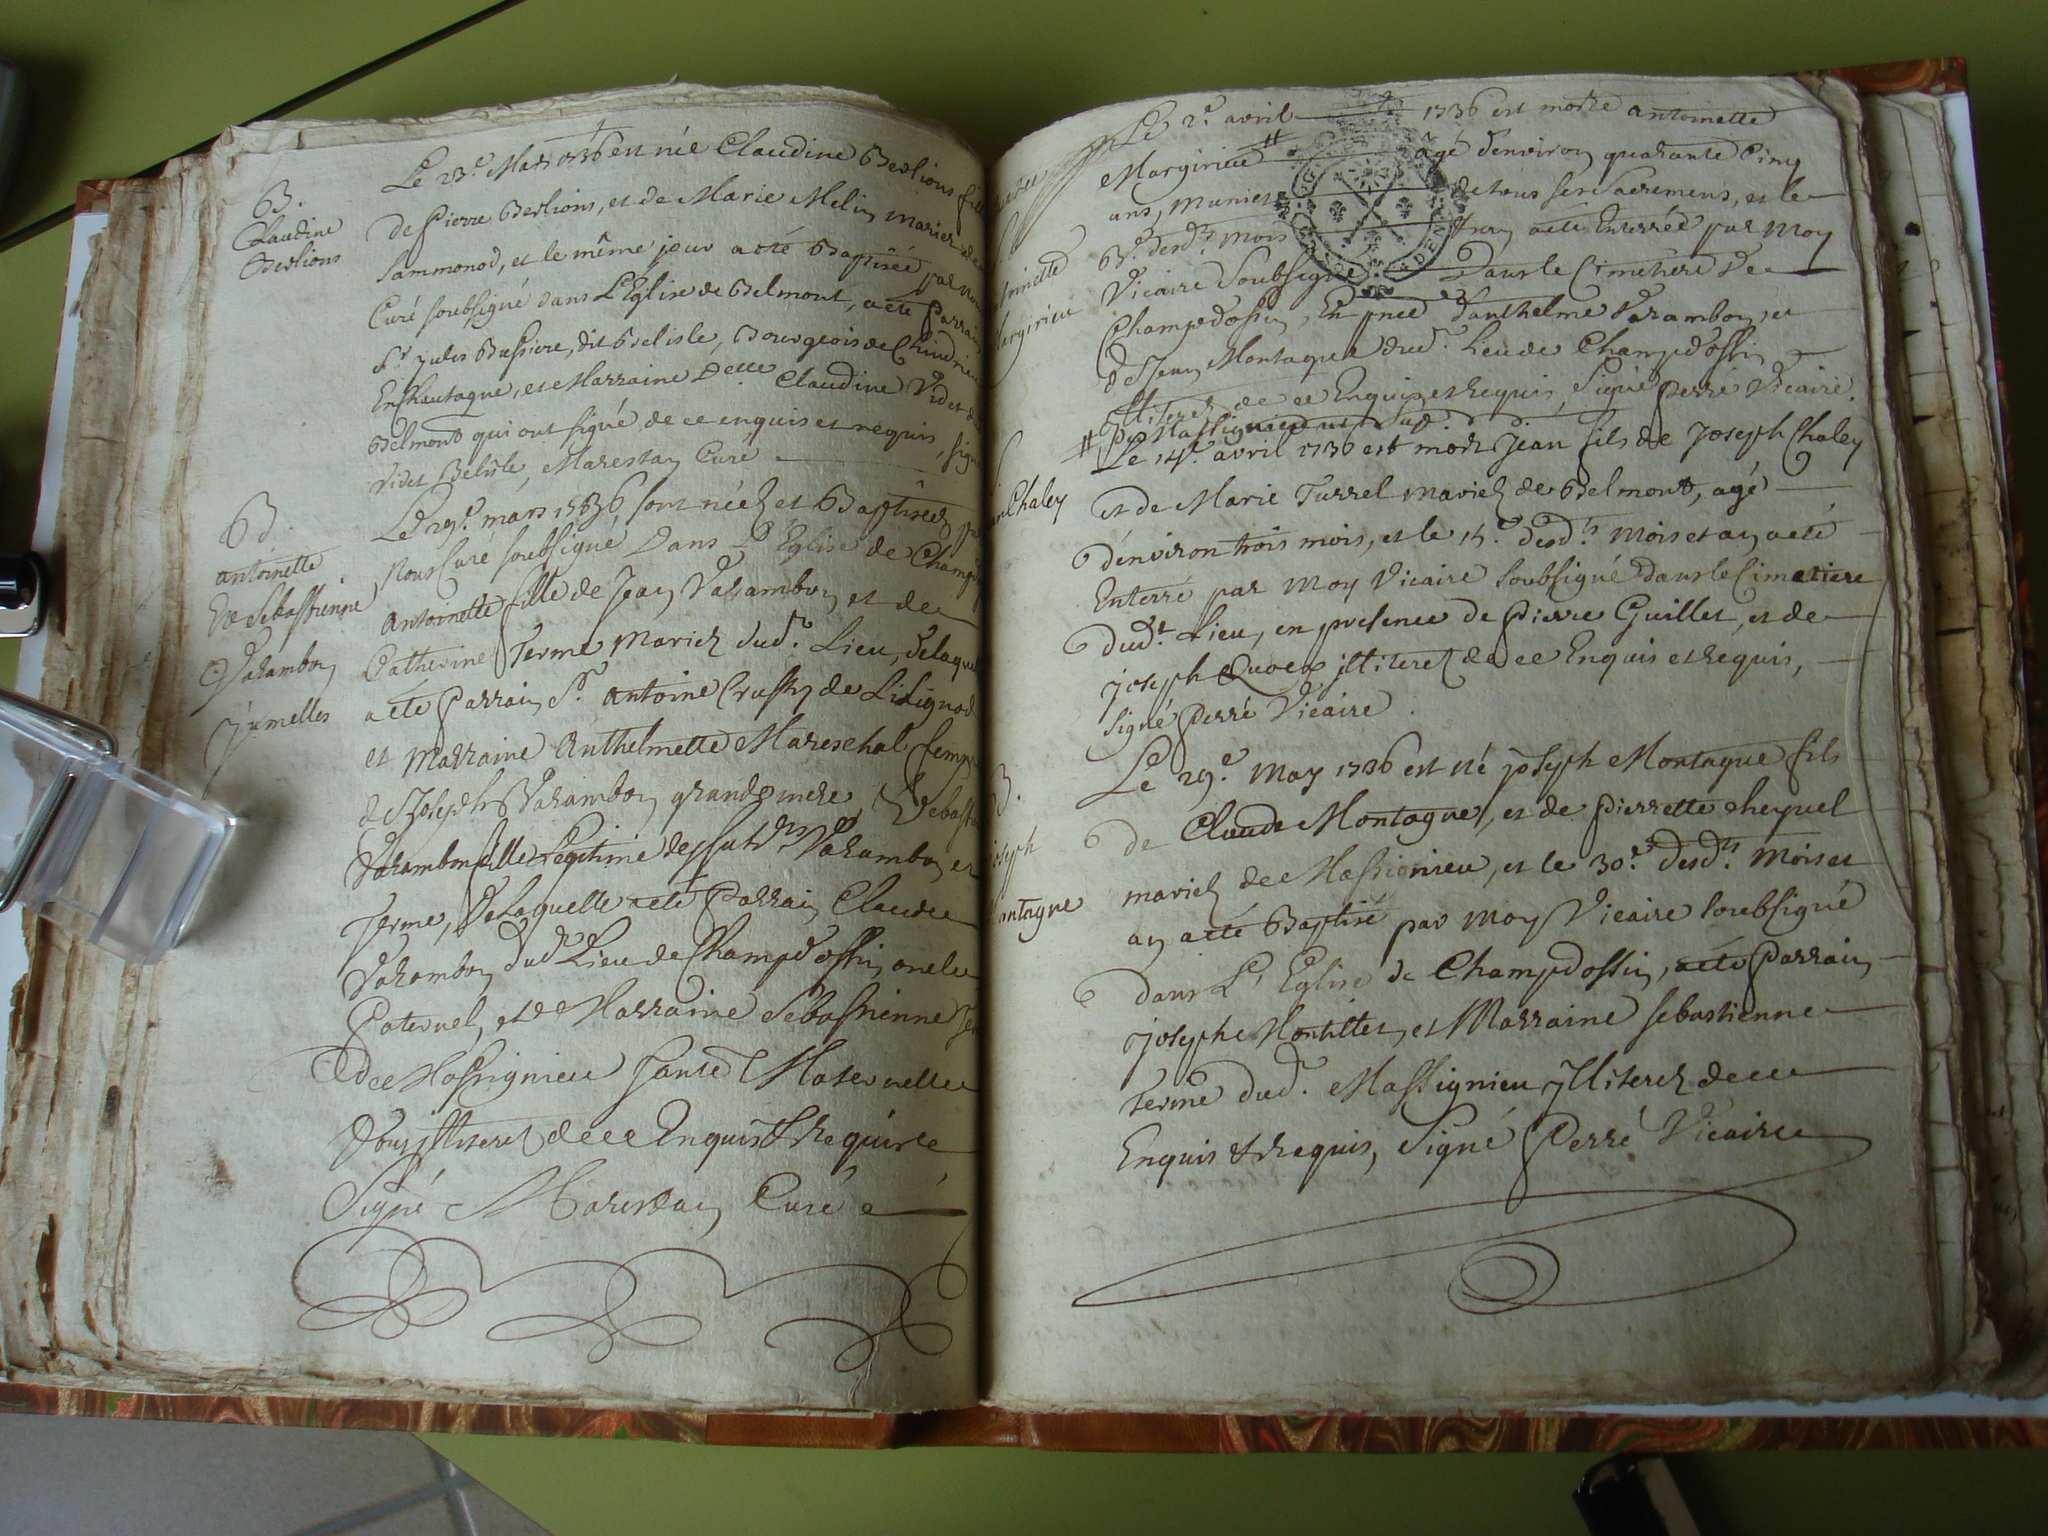 B.
Claudine
Berlions
Le 23.e Mars 1736 est née Claudine Berlions fille
de Pierre Berlions, et de Marie Melin mariez de
Sammonod, et le même jour a eté Baptisée par Nous
Curé soubsigné dans L'Eglise de Belmont, a eté Parrain
Sr. Jules Bussiere, dit Belisle, Bourgeois de Chindrieu
En Chautagne, et Marraine Delle. Claudine Videt de
Belmont qui ont signé de ce enquis et requis, signé
Videt Belisle, Marestan Curé
B
antoinette
et Sebastienne
Varambon
Jumelles
Le 29.e mars 1736 sont néez et Baptiséez par
Nous Curé soubsigné Dans L'Eglise de Champd
Antoinette fille de Jean Varambon et de
Catherine Terme Mariez dud.t Lieu, de laquelle
a eté Parrain Sr. antoine Crussy de Lilignod
et Marraine Anthelmette Mareschal femme
de Joseph Varambon grand mere, et Sebast
Varambon fille legitime desusd.ts Varambon et
Terme, De Laquelle a eté Parrain Claude
Varambon dud.t Lieu de Champdossin oncle
Paternel, et Marraine Sebastienne Ter
de Massignieu Tante Maternelle
Tous illiterez de ce Enquis & Requis
Signé Marestan Curé
antoinette
Margirieu
Le 2.e avril 1736 est morte antoinette
Margirieu # agé d'environ quarante Cinq
ans, munies de tous ses Sacremens, et le
3.e desd.ts mois et an a eté Enterrée par Moy
Vicaire Soubsigné Dans le Cimetiere de
Champdossin, En pnce d'anthelme Varambon, et
de Jean Montagne dud.t Lieu de Champdossin
illiterez de ce Enquis et Requis, Signé Perré Vicaire.
# de Massignieu
Jean Chaley
Le 14.e avril 1736 est mort Jean fils de Joseph Chaley
et de Marie Turrel mariez de Belmont, agé
d'environ trois mois, et le 15.e desd.ts Mois et an a eté
Enterré par Moy Vicaire Soubsigné dans le Cimetiere
dud.t Lieu, en presence de Pierre Guillet, et de
Joseph illiterez de ce Enquis et Requis,
Signé Perré Vicaire.
B.
Joseph
Montagne
Le 29.e May 1736 est né Joseph Montagne fils
de Claude Montagne, et de Pierrette cheynel
mariez de Massignieu, et le 30.e desd.ts Mois et
an a eté Baptisé par Moy Vicaire Soubsigné
dans L'Eglise de Champdossin, a eté Parrain
Joseph Montillet, et Marraine Sebastienne
Terme dud.t Massignieu illiterez de ce
Enquis & Requis, Signé Perré Vicaire